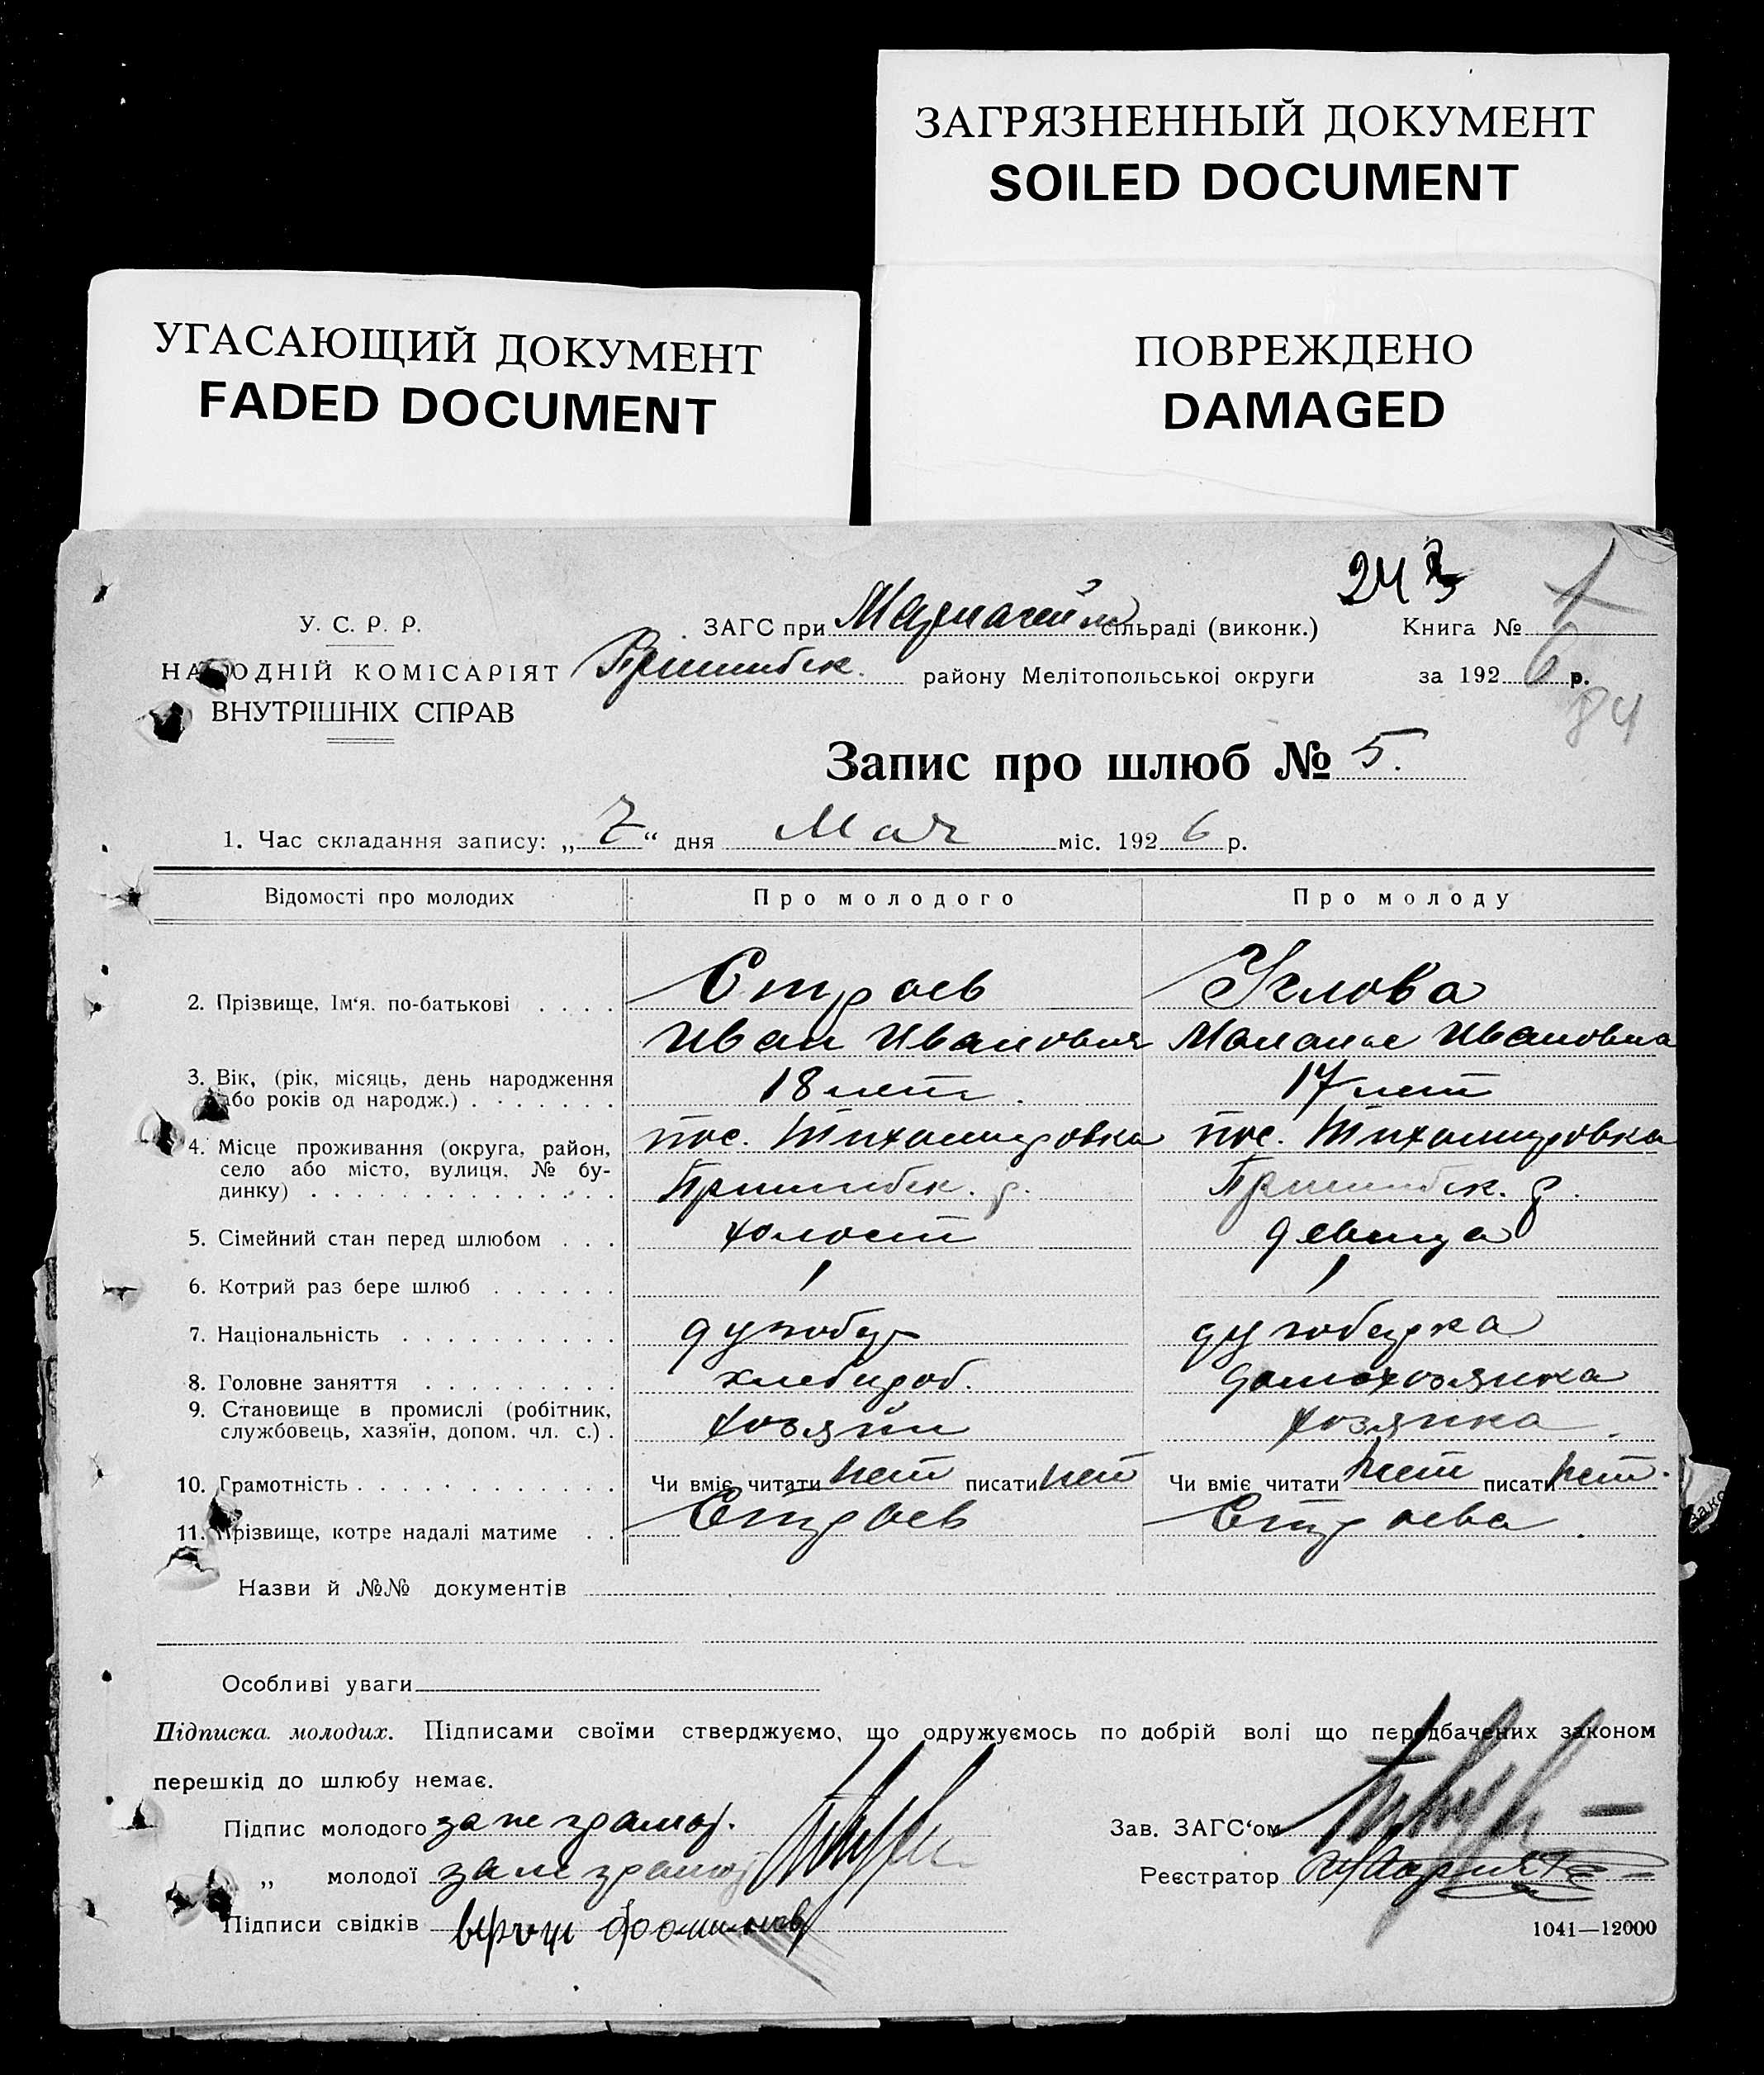 ЗАГРЯЗНЕННЫЙ ДОКУМЕНТ
SOILED DOCUMENT
УГАСАЮЩИЙ ДОКУМЕНТ
FADED DOCUMENT
ПОВРЕЖДЕНО
DAMAGED
У. С. Р. Р.
НАРОДНІЙ КОМІСАРІЯТ
ВНУТРІШНІХ СПРАВ
ЗАГС при сільраді (виконк.) Книга №
Пришибск. району Мелітопольської округи за 1926 р.
84
Запис про шлюб № 5.
1. Час складання запису: „7“ дня Мая міс. 1926 р.
Відомості про молодих Про молодого Про молоду
2. Прізвище, Ім‘я, по-батькові . . . . Строев Углова
Иван Иванович Малания Ивановна
3. Вік, (рік, місяць, день народження 18 лет. 17 лет
або років од народж.) . . . . . . .
4. Місце проживання (округа, район, пос. Тихомировка пос. Тихомировка
село або місто, вулиця, № бу-
динку) . . . . . . . . . . . . . . Пришибск. р. Пришибск. р.
5. Сімейний стан перед шлюбом . . . холост девица
6. Котрий раз бере шлюб . . . . . . 1 1
7. Національність . . . . . . . . . . духобор духоборка
8. Головне заняття . . . . . . . . . хлебороб. домохозяика
9. Становище в промислі (робітник,
службовець, хазяїн, допом. чл. с.) . хозяин хозяика.
10. Грамотність . . . . . . . . . . . . Чи вміє читати нет писати нет Чи вміє читати нет писати нет.
11. Прізвище, котре надалі матиме . . Строев Строева.
Назви й №№ документів
Особливі уваги
Підписка молодих. Підписами своїми стверджуємо, що одружуємось по добрій волі що передбачених законом
перешкід до шлюбу немає.
Підпис молодого за не грамот. Зав. ЗАГС‘ом
„ молодої за не грамот Реєстратор
Підписи свідків
1041—12000